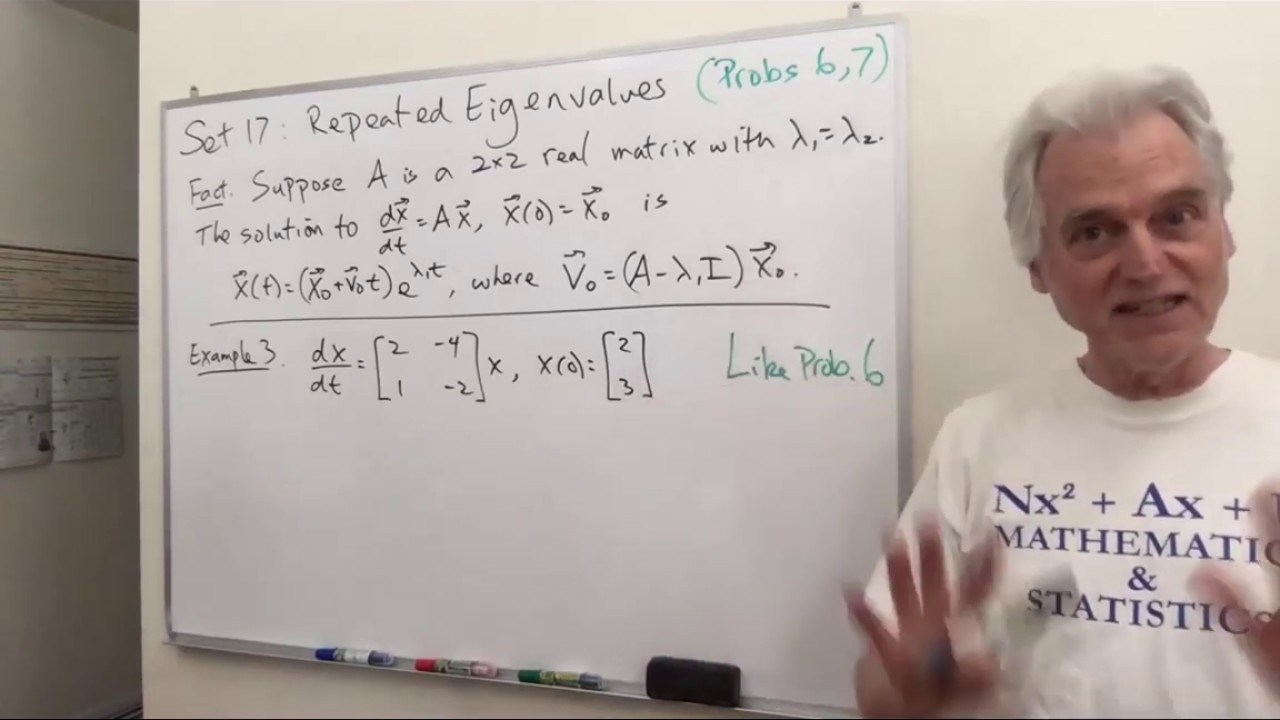 Set 17: Repeated Eigenvalues (Probs 6,7)
Fact. Suppose A is a 2×2 real matrix with λ₁=λ₂.
The solution to dx⃗/dt = Ax⃗, x⃗(0) = x⃗₀ is
x⃗(t)=(x⃗₀+v⃗₀t)e^λ₁t, where v⃗₀=(A-λ₁I)x⃗₀.
Example 3. dx/dt = [2 -4; 1 -2]x, x(0)=[2; 3] Like Prob. 6
Nx² + Ax +
MATHEMATIC
&
STATISTICS